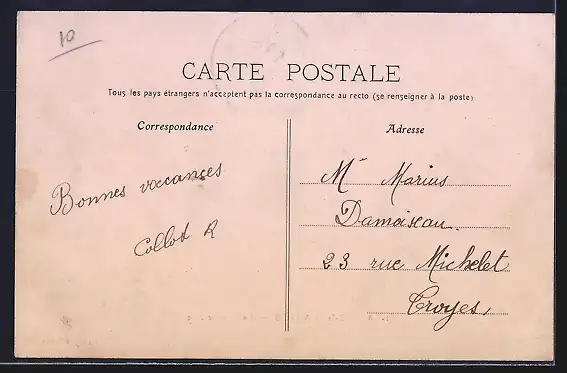 10
CARTE POSTALE
Tous les pays étrangers n'acceptent pas la correspondance au recto (se renseigner à la poste)
Correspondance
Adresse
Bonnes vaccances
Collot R
Mr Marius
Damoiseau.
23 rue Michelet
Troyes,